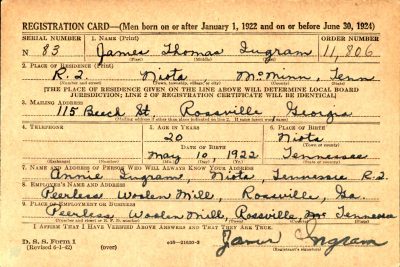 REGISTRATION CARD—(Men born on or after January 1, 1922 and on or before June 30, 1924)
SERIAL NUMBER 1. NAME (Print) ORDER NUMBER
N 83 James Thomas Ingram 11,806
(First) (Middle) (Last)
2. PLACE OF RESIDENCE (Print)
R.2 Niota McMinn, Tenn
(Number and street) (Town, township, village, or city) (County) (State)
[THE PLACE OF RESIDENCE GIVEN ON THE LINE ABOVE WILL DETERMINE LOCAL BOARD
JURISDICTION; LINE 2 OF REGISTRATION CERTIFICATE WILL BE IDENTICAL]
3. MAILING ADDRESS
115 Beech St, Rossville, Georgia
[Mailing address if other than place indicated on line 2. If same insert word same]
4. TELEPHONE 5. AGE IN YEARS 6. PLACE OF BIRTH
20 Niota
DATE OF BIRTH
May 10, 1922 Tennessee
(Exchange) (Number) (Mo.) (Day) (Yr.) (State or country)
7. NAME AND ADDRESS OF PERSON WHO WILL ALWAYS KNOW YOUR ADDRESS
Annie Ingram Niota, Tennessee R.2
8. EMPLOYER'S NAME AND ADDRESS
Peerless Woolen Mill, Rossville, Ga.
9. PLACE OF EMPLOYMENT OR BUSINESS
Peerless Woolen Mill, Rossville, Tennessee
(Number and street or R. F. D. number) (Town) (County) (State)
I AFFIRM THAT I HAVE VERIFIED ABOVE ANSWERS AND THAT THEY ARE TRUE.
D. S. S. Form 1
(Revised 6-1-42) (over) 16—21630-2
James Ingram